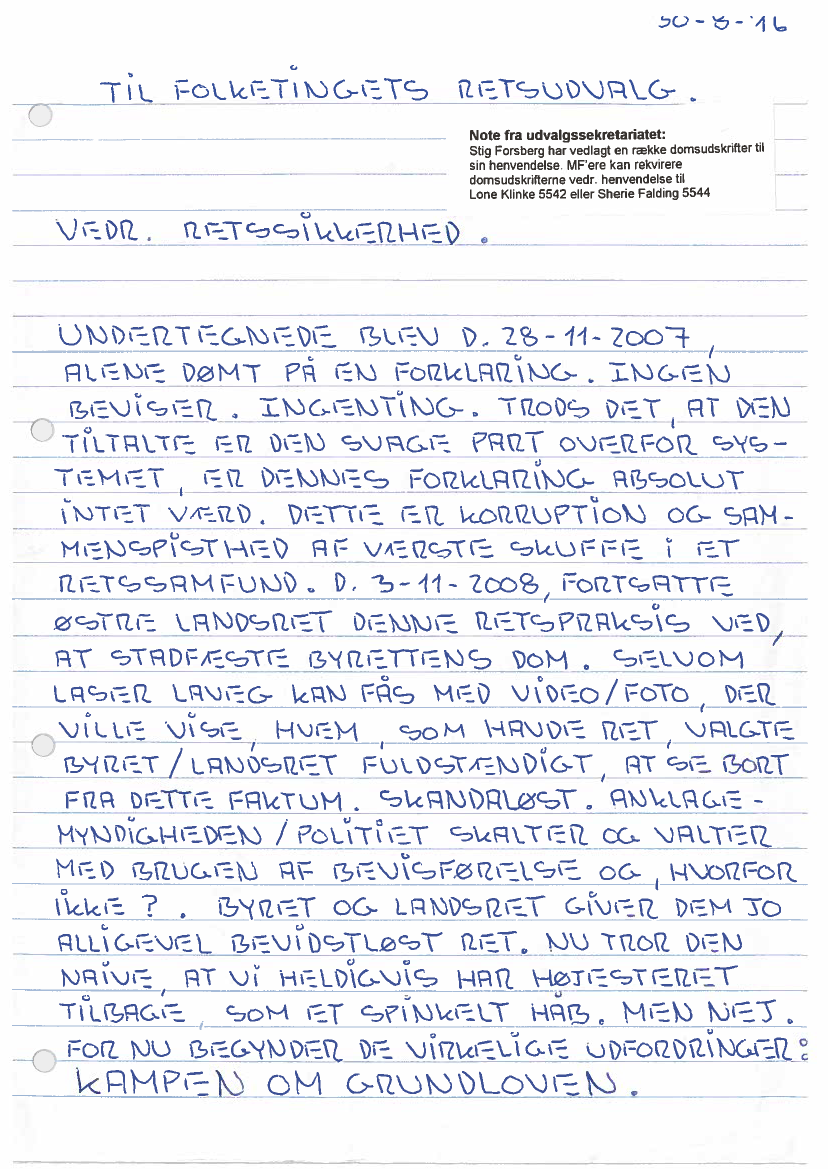 30-8-'16
TIL FOLKETINGETS RETSUDVALG.
Note fra udvalgssekretariatet:
Stig Forsberg har vedlagt en række domsudskrifter til
sin henvendelse. MF'ere kan rekvirere
domsudskrifterne vedr. henvendelse til
Lone Klinke 5542 eller Sherie Falding 5544
VEDR. RETSSIKKERHED.
UNDERTEGNEDE BLEV D. 28-11-2007,
ALENE DØMT PÅ EN FORKLARING. INGEN
BEVISER. INGENTING. TRODS DET, AT DEN
TILTALTE ER DEN SVAGE PART OVERFOR SYS-
TEMET, ER DENNES FORKLARING ABSOLUT
INTET VÆRD. DETTE ER KORRUPTION OG SAM-
MENSPISTHED AF VÆRSTE SKUFFE I ET
RETSSAMFUND. D. 3-11-2008, FORTSATTE
ØSTRE LANDSRET DENNE RETSPRAKSIS VED,
AT STADFÆSTE BYRETTENS DOM. SELVOM
LASER LAVEG KAN FÅS MED VIDEO/FOTO, DER
VILLE VISE, HVEM, SOM HAVDE RET, VALGTE
BYRET/LANDSRET FULDSTÆNDIGT, AT SE BORT
FRA DETTE FAKTUM. SKANDALØST. ANKLAGE-
MYNDIGHEDEN/POLITIET SKALTER OG VALTER
MED BRUGEN AF BEVISFØRELSE OG, HVORFOR
IKKE?. BYRET OG LANDSRET GIVER DEM JO
ALLIGEVEL BEVIDSTLØST RET. NU TROR DEN
NAIVE, AT VI HELDIGVIS HAR HØJESTERET
TILBAGE, SOM ET SPINKELT HÅB. MEN NEJ.
FOR NU BEGYNDER DE VIRKELIGE UDFORDRINGER:
KAMPEN OM GRUNDLOVEN.